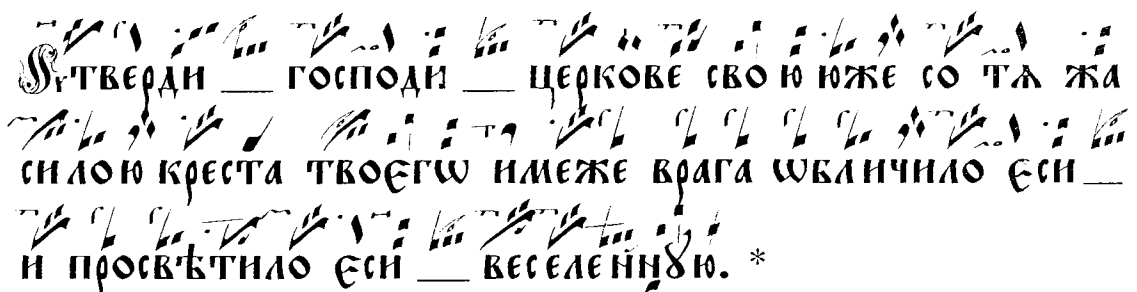 Ѹтверди ___ господи ___ церкове свою юже со тѧ жа
силою креста твоегѡ имеже врага ѡбличило еси ___
и просвѣтило еси ___ веселеннꙋю. *